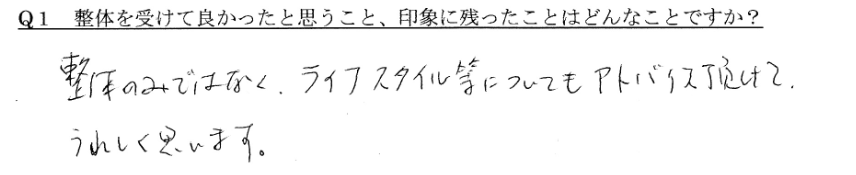 Q1 整体を受けて良かったと思うこと、印象に残ったことはどんなことですか？
整体のみではなく、ライフスタイル等についてもアドバイス頂けて、
うれしく思います。